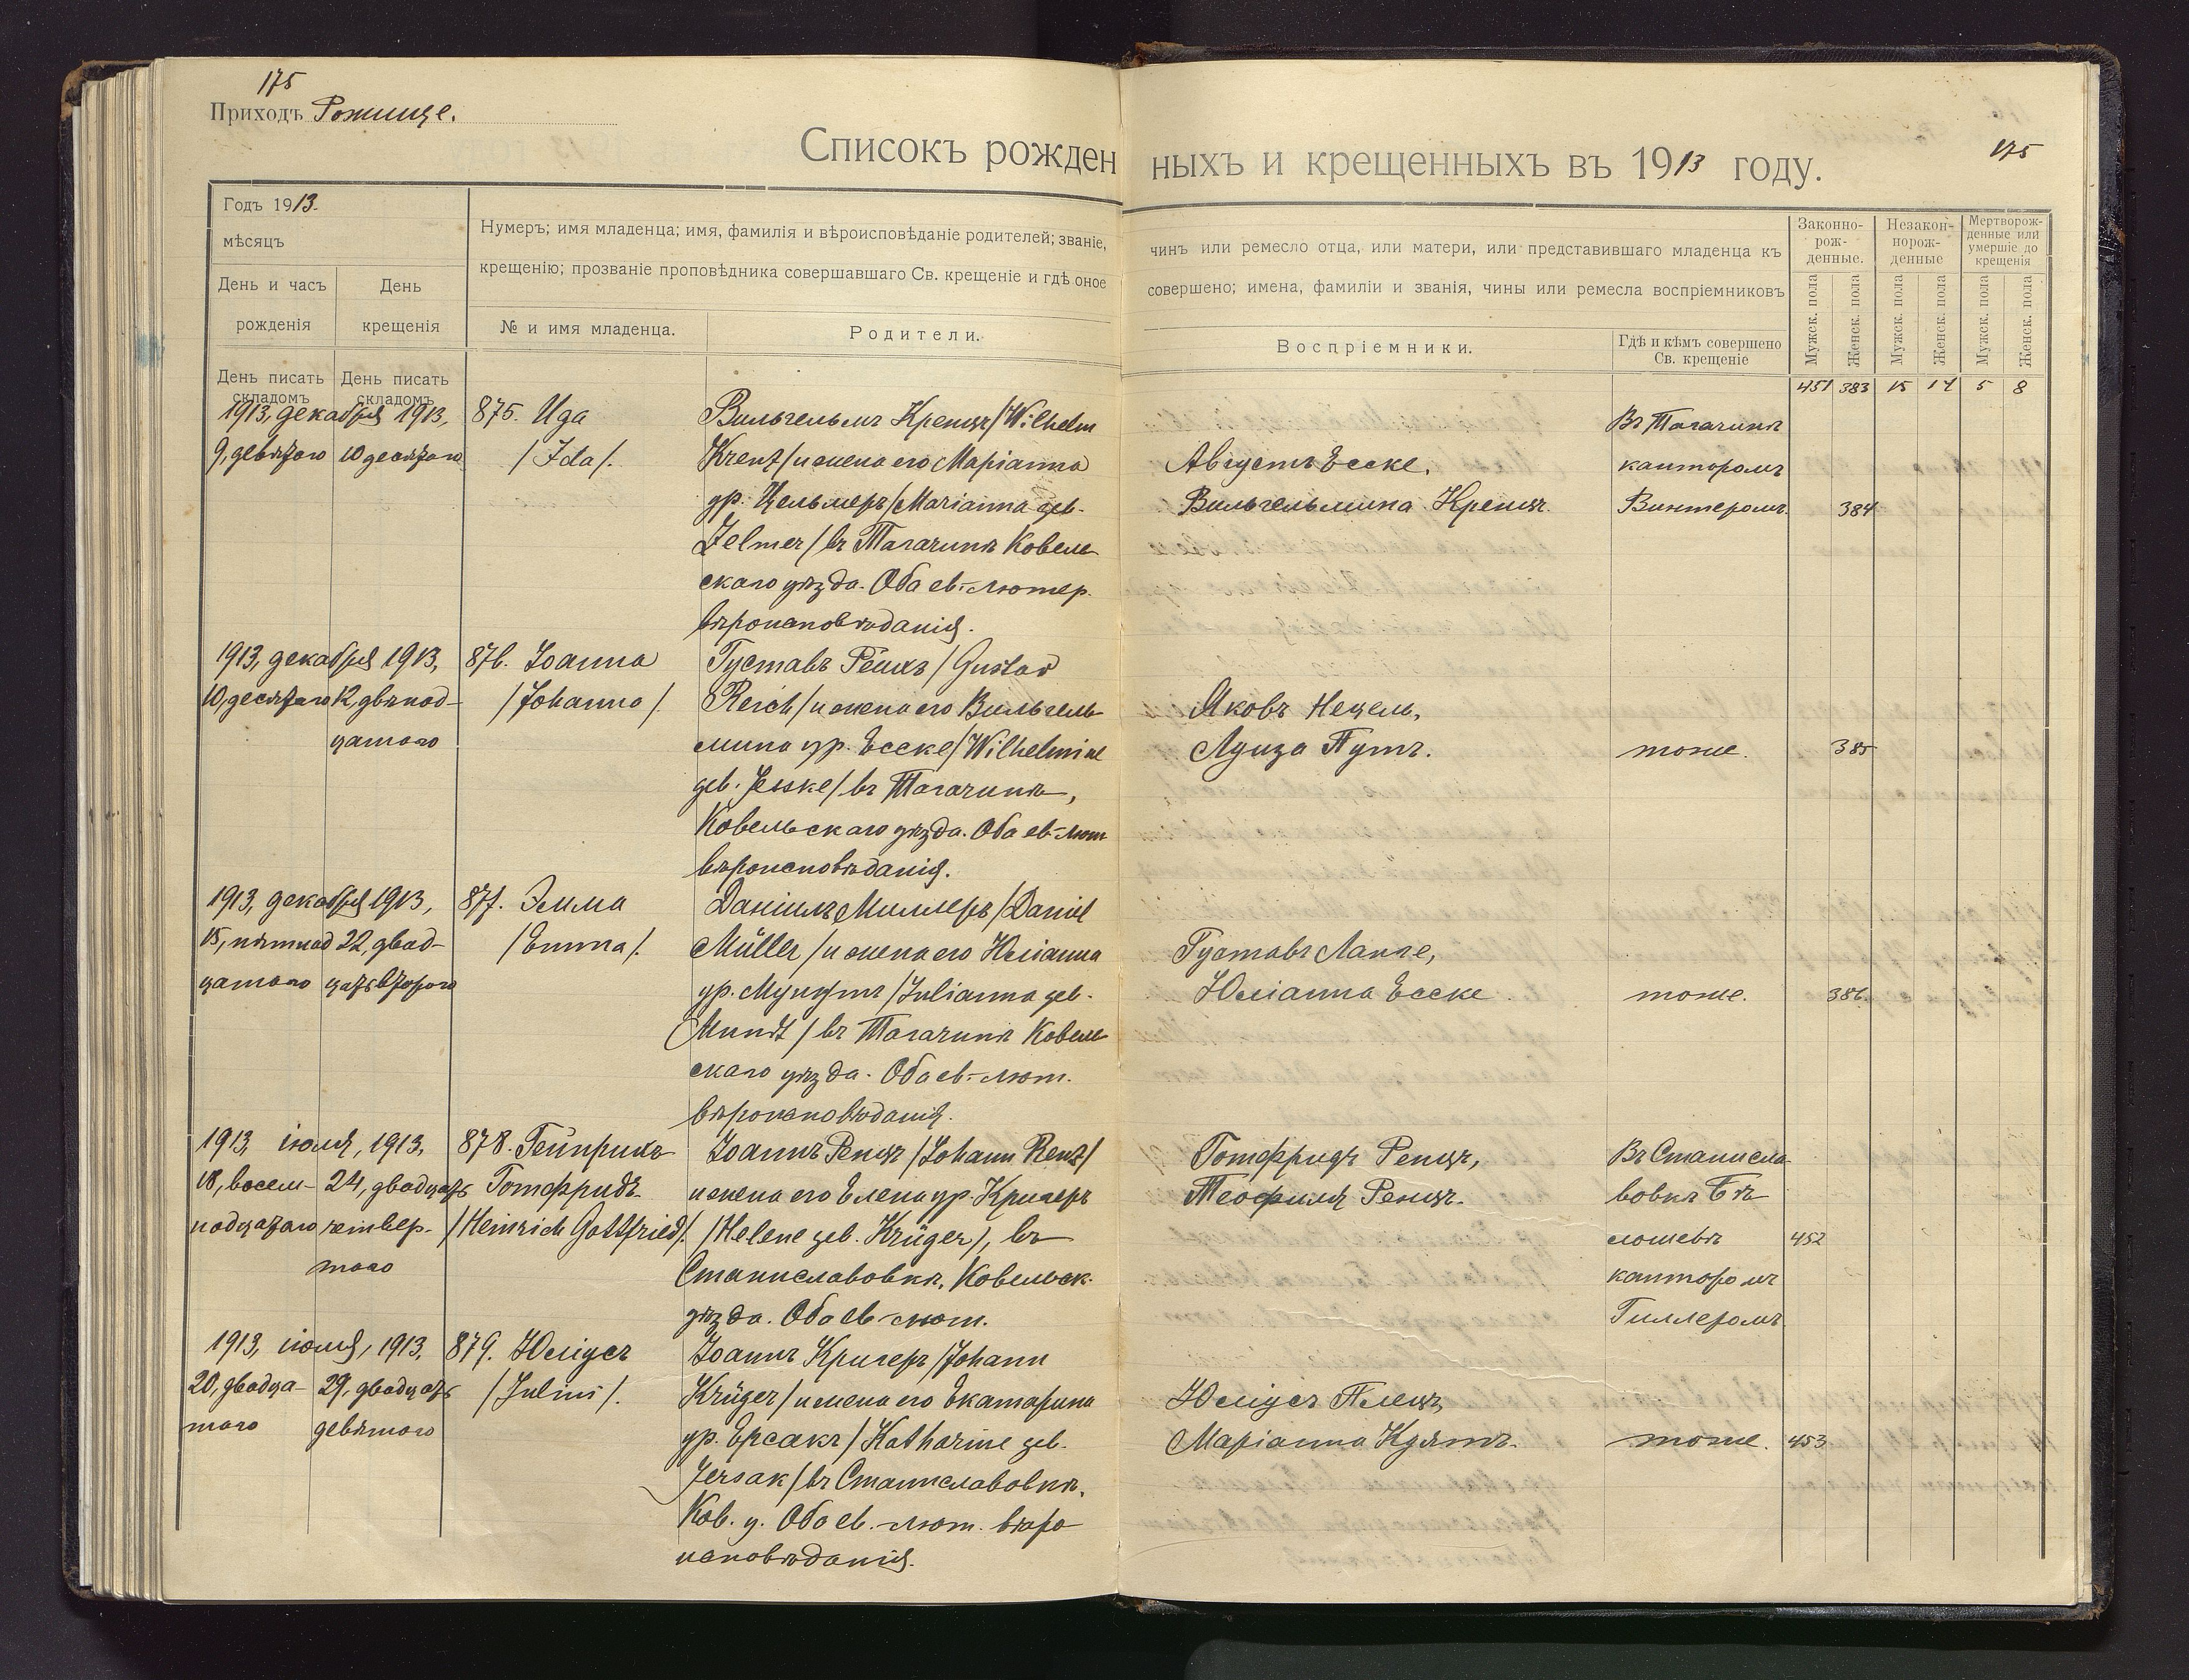 175
Приходъ Рожище.
Списокъ рожден
ныхъ и крещенныхъ въ 1913 году.
175
Годъ 1913.
мѣсяцъ
День и часъ
рожденія
День
крещенія
Нумеръ; имя младенца; имя, фамилія и вѣроисповѣданіе родителей; званіе,
крещенію; прозваніе проповѣдника совершавшаго Св. крещеніе и гдѣ оное
№ и имя младенца.
Родители.
чинъ или ремесло отца, или матери, или представившаго младенца къ
совершено; имена, фамиліи и званія, чины или ремесла воспріемниковъ
Воспріемники.
Гдѣ и кѣмъ совершено
Св. крещеніе
Законно-
рож-
денные.
Незакон-
норож-
денные
Мертворож-
денные или
умершіе до
крещенія
Мужск. пола
Женск. пола
Мужск. пола
Женск. пола
Мужск. пола
Женск. пола
День писать
складомъ
День писать
складомъ
451 383 15 14 5 8
1913, декабря 1913,
9, девятаго 10 десятаго
875. Ида
/Ida/.
Вильгельмъ Кренцъ/Wilhelm
Krenz/и жена его Маріанна
ур. Цельмеръ/Marianna geb.
Zelmer/ въ Тагачинѣ Ковель
скаго уѣзда. Оба ев.-лютер.
вѣроисповѣданія.
Августъ Ески,
Вильгельмина Кренцъ.
Въ Тагачинѣ
канторомъ
Винтеромъ.
384
1913, декабря 1913,
10, десятаго 12, двѣнад-
цатаго
876. Іоанна
/Johanna/.
Густавъ Рейхъ/Gustav
Reich/и жена его Вильгель
мина ур. Ески/Wilhelmine
geb. Jesske/ въ Тагачинѣ,
Ковельскаго уѣзда. Оба ев.-лют
вѣроисповѣданія.
Яковъ Нецель,
Луиза Путъ.
тоже.
385
1913, декабря 1913,
15, пятнад 22, двад-
цатаго цать втораго
877. Эмма
/Emma/.
Даніилъ Миллеръ/Daniel
Müller/и жена его Юліанна
ур. Мундтъ/Julianna geb.
Mundt/ въ Тагачинѣ Ковель
скаго уѣзда. Оба ев.-лют.
вѣроисповѣданія.
Густавъ Ланге,
Юліанна Ески.
тоже.
386.
1913, іюля, 1913,
18, восем- 24, двадцать
надцатаго четвер-
таго
878. Гейнрихъ
Готфридъ.
/Heinrich Gottfried/.
Іоаннъ Ренцъ/Johann Renz/
и жена его Елена ур. Кригеръ
/Helene geb. Krüger/, въ
Станиславовкѣ, Ковельск.
уѣзда. Оба ев.-лют.
Готфридъ Ренцъ,
Теофиля Ренцъ.
Въ Станисла
вовкѣ Бѣ
лошевѣ
канторомъ
Гиллеромъ.
452
1913, іюля, 1913,
20, двадца- 29, двадцать
таго девятаго
879. Юліусъ
/Julius/.
Іоаннъ Кригеръ/Johann
Krüger/и жена его Екатарина
ур. Ерсакъ/Katharine geb.
Jersak/ въ Станиславовкѣ,
Ков. у. Оба ев.-лют. вѣро
исповѣданія.
Юліусъ Пленцъ,
Маріанна
тоже.
453